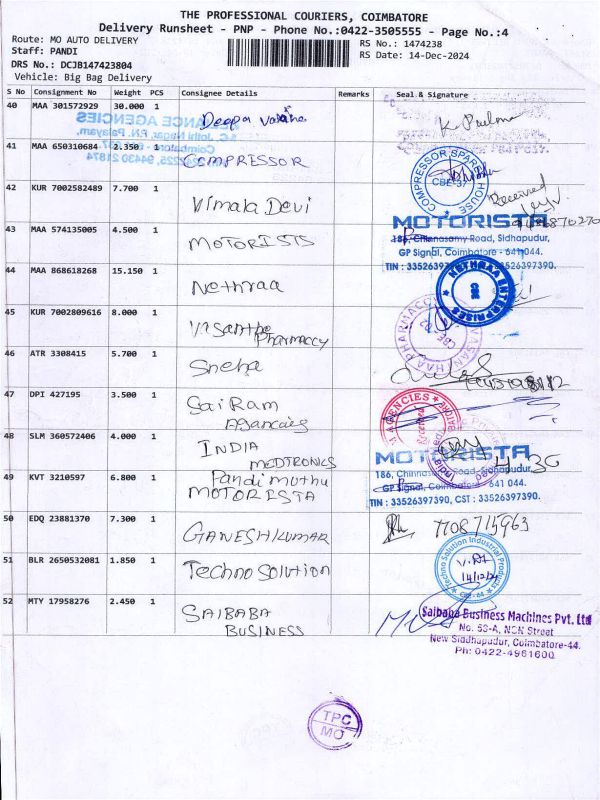 THE PROFESSIONAL COURIERS, COIMBATORE
Delivery Runsheet - PNP - Phone No.:0422-3505555 - Page No.:4
Route: MO AUTO DELIVERY
Staff: PANDI
DRS No.: DCJB147423804
Vehicle: Big Bag Delivery
RS No.: 1474238
RS Date: 14-Dec-2024
S No Consignment No Weight PCS Consignee Details Remarks Seal & Signature
40 MAA 301572929 30.000 1 Deepa
41 MAA 650310684 2.350 1 COMPRESSOR
COMPRESSOR SPARES HOUSE
CBE-37
42 KUR 7002582489 7.700 1 Vimala Devi
Received
43 MAA 574135005 4.500 1 MOTORISTS
MOTORISTA
186, Chinnasamy Road, Sidhapudur,
GP Signal, Coimbatore - 641044.
TIN : 33526397390.
44 MAA 868618268 15.150 1 Nethraa
NETHRAA ENTERPRISES
45 KUR 7002809616 8.000 1 Vasantha Pharmaccy
46 ATR 3308415 5.700 1 Sneha
47 DPI 427195 3.500 1 Sai Ram
Agancies
AGENCIES
48 SLM 360572406 4.000 1 INDIA
MEDTRONICS
MOTORISTA
49 KVT 3210597 6.800 1 Pandi muthu
MOTORISTA
GP Signal, Coimbatore - 641 044.
TIN : 33526397390, CST : 33526397390.
50 EDQ 23881370 7.300 1 GANESH KUMAR
7708715963
51 BLR 2650532081 1.850 1 Techno Solution
Techno Solution Industrial Products
52 MTY 17958276 2.450 1 SAIBABA
BUSINESS
Saibaba Business Machines Pvt. Ltd
No. 53-A, NSN Street
New Siddhapudur, Coimbatore-44.
Ph: 0422-4961600
TPC
MO